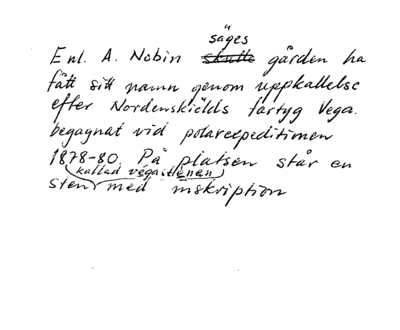 säges
Enl. A. Nobin skulle gården ha
fått sitt namn genom uppkallelse
efter Nordenskiölds fartyg Vega.
begagnat vid polarexpeditionen
1878-80. På platsen står en
(kallad vegastenen)
sten med inskription